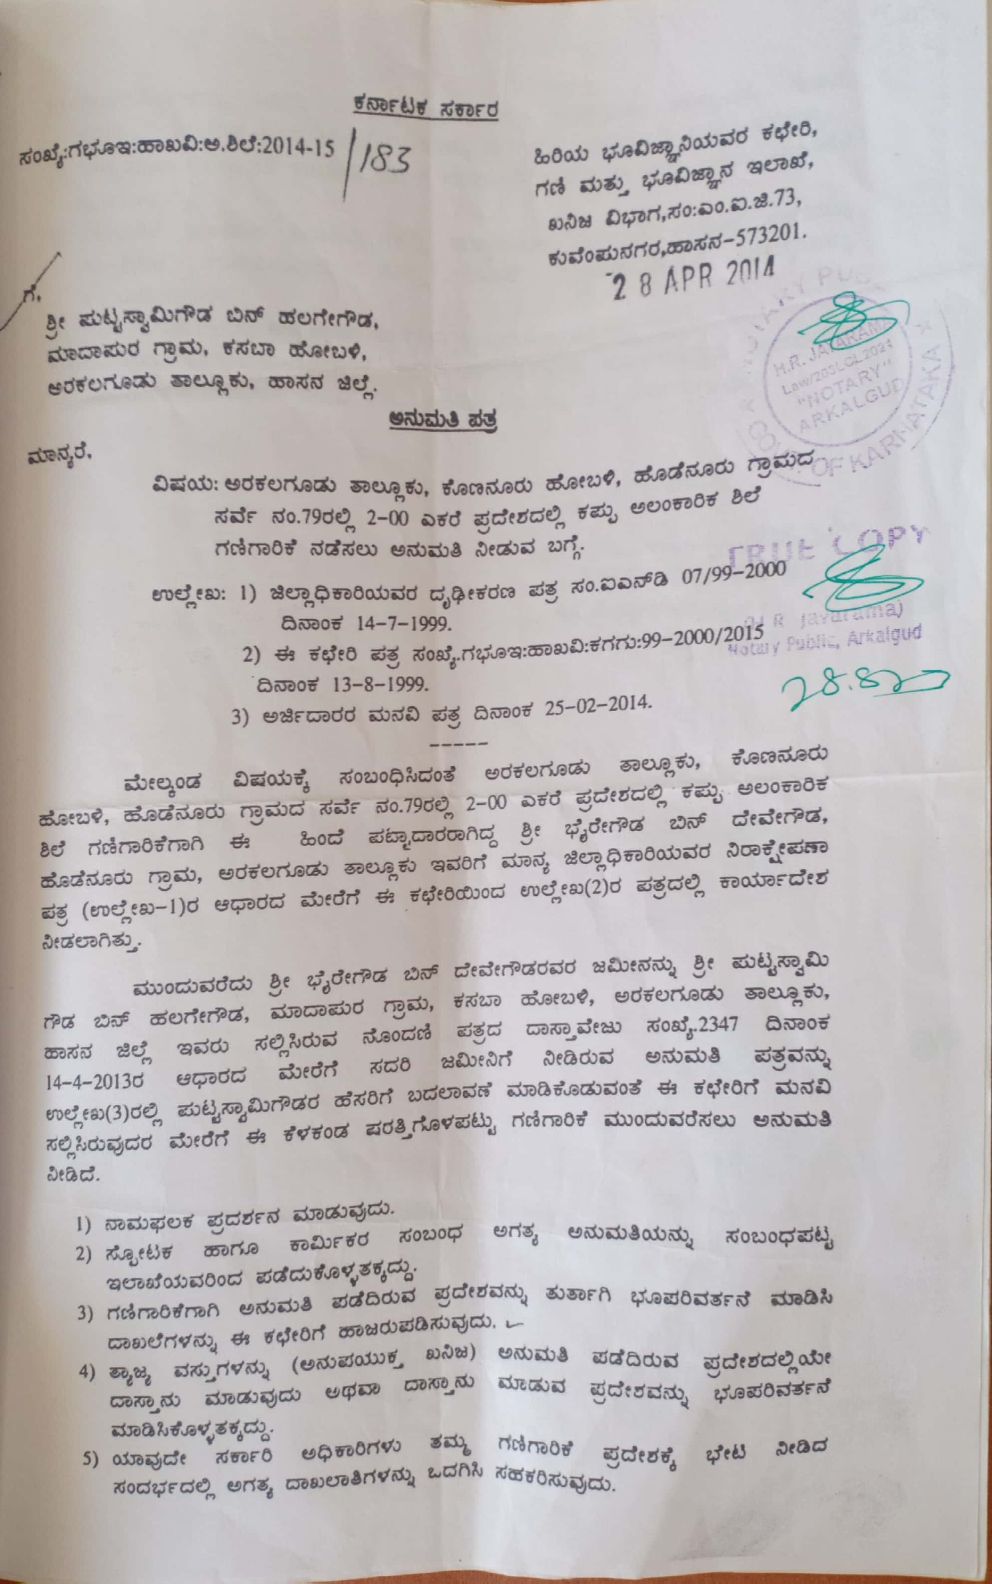 ಕರ್ನಾಟಕ ಸರ್ಕಾರ
ಸಂಖ್ಯೆ:ಗಭೂಇ:ಹಾಖವಿ:ಅ.ಶಿಲೆ:2014-15/183
ಹಿರಿಯ ಭೂವಿಜ್ಞಾನಿಯವರ ಕಛೇರಿ,
ಗಣಿ ಮತ್ತು ಭೂವಿಜ್ಞಾನ ಇಲಾಖೆ,
ಖನಿಜ ವಿಭಾಗ,ಸಂ:ಎಂ.ಐ.ಜಿ.73,
ಕುವೆಂಪುನಗರ,ಹಾಸನ-573201.
28 APR 2014
ಗೆ,
ಶ್ರೀ ಪುಟ್ಟಸ್ವಾಮಿಗೌಡ ಬಿನ್ ಹಲಗೇಗೌಡ,
ಮಾದಾಪುರ ಗ್ರಾಮ, ಕಸಬಾ ಹೋಬಳಿ,
ಅರಕಲಗೂಡು ತಾಲ್ಲೂಕು, ಹಾಸನ ಜಿಲ್ಲೆ.
NOTARY PU
H.R. JAYARAMA
Law/203LCL2021
"NOTARY"
ARKALGUD
OF KARNATAKA
ಅನುಮತಿ ಪತ್ರ
ಮಾನ್ಯರೆ,
ವಿಷಯ: ಅರಕಲಗೂಡು ತಾಲ್ಲೂಕು, ಕೊಣನೂರು ಹೋಬಳಿ, ಹೊಡೆನೂರು ಗ್ರಾಮದ
ಸರ್ವೆ ನಂ.79ರಲ್ಲಿ 2-00 ಎಕರೆ ಪ್ರದೇಶದಲ್ಲಿ ಕಪ್ಪು ಅಲಂಕಾರಿಕ ಶಿಲೆ
ಗಣಿಗಾರಿಕೆ ನಡೆಸಲು ಅನುಮತಿ ನೀಡುವ ಬಗ್ಗೆ.
TRUE COPY
ಉಲ್ಲೇಖ: 1) ಜಿಲ್ಲಾಧಿಕಾರಿಯವರ ದೃಢೀಕರಣ ಪತ್ರ ಸಂ.ಐಎನ್‌ಡಿ 07/99-2000
ದಿನಾಂಕ 14-7-1999.
(H R Jayarama)
Notary Public, Arkalgud
2) ಈ ಕಛೇರಿ ಪತ್ರ ಸಂಖ್ಯೆ.ಗಭೂಇ:ಹಾಖವಿ:ಕಗಗು:99-2000/2015
ದಿನಾಂಕ 13-8-1999.
3) ಅರ್ಜಿದಾರರ ಮನವಿ ಪತ್ರ ದಿನಾಂಕ 25-02-2014.
-----
ಮೇಲ್ಕಂಡ ವಿಷಯಕ್ಕೆ ಸಂಬಂಧಿಸಿದಂತೆ ಅರಕಲಗೂಡು ತಾಲ್ಲೂಕು, ಕೊಣನೂರು
ಹೋಬಳಿ, ಹೊಡೆನೂರು ಗ್ರಾಮದ ಸರ್ವೆ ನಂ.79ರಲ್ಲಿ 2-00 ಎಕರೆ ಪ್ರದೇಶದಲ್ಲಿ ಕಪ್ಪು ಅಲಂಕಾರಿಕ
ಶಿಲೆ ಗಣಿಗಾರಿಕೆಗಾಗಿ ಈ ಹಿಂದೆ ಪಟ್ಟಾದಾರರಾಗಿದ್ದ ಶ್ರೀ ಭೈರೇಗೌಡ ಬಿನ್ ದೇವೇಗೌಡ,
ಹೊಡೆನೂರು ಗ್ರಾಮ, ಅರಕಲಗೂಡು ತಾಲ್ಲೂಕು ಇವರಿಗೆ ಮಾನ್ಯ ಜಿಲ್ಲಾಧಿಕಾರಿಯವರ ನಿರಾಕ್ಷೇಪಣಾ
ಪತ್ರ (ಉಲ್ಲೇಖ-1)ರ ಆಧಾರದ ಮೇರೆಗೆ ಈ ಕಛೇರಿಯಿಂದ ಉಲ್ಲೇಖ(2)ರ ಪತ್ರದಲ್ಲಿ ಕಾರ್ಯಾದೇಶ
ನೀಡಲಾಗಿತ್ತು.
ಮುಂದುವರೆದು ಶ್ರೀ ಭೈರೇಗೌಡ ಬಿನ್ ದೇವೇಗೌಡರವರ ಜಮೀನನ್ನು ಶ್ರೀ ಪುಟ್ಟಸ್ವಾಮಿ
ಗೌಡ ಬಿನ್ ಹಲಗೇಗೌಡ, ಮಾದಾಪುರ ಗ್ರಾಮ, ಕಸಬಾ ಹೋಬಳಿ, ಅರಕಲಗೂಡು ತಾಲ್ಲೂಕು,
ಹಾಸನ ಜಿಲ್ಲೆ ಇವರು ಸಲ್ಲಿಸಿರುವ ನೊಂದಣಿ ಪತ್ರದ ದಾಸ್ತಾವೇಜು ಸಂಖ್ಯೆ.2347 ದಿನಾಂಕ
14-4-2013ರ ಆಧಾರದ ಮೇರೆಗೆ ಸದರಿ ಜಮೀನಿಗೆ ನೀಡಿರುವ ಅನುಮತಿ ಪತ್ರವನ್ನು
ಉಲ್ಲೇಖ(3)ರಲ್ಲಿ ಪುಟ್ಟಸ್ವಾಮಿಗೌಡರ ಹೆಸರಿಗೆ ಬದಲಾವಣೆ ಮಾಡಿಕೊಡುವಂತೆ ಈ ಕಛೇರಿಗೆ ಮನವಿ
ಸಲ್ಲಿಸಿರುವುದರ ಮೇರೆಗೆ ಈ ಕೆಳಕಂಡ ಷರತ್ತಿಗೊಳಪಟ್ಟು ಗಣಿಗಾರಿಕೆ ಮುಂದುವರೆಸಲು ಅನುಮತಿ
ನೀಡಿದೆ.
1) ನಾಮಫಲಕ ಪ್ರದರ್ಶನ ಮಾಡುವುದು.
2) ಸ್ಪೋಟಕ ಹಾಗೂ ಕಾರ್ಮಿಕರ ಸಂಬಂಧ ಅಗತ್ಯ ಅನುಮತಿಯನ್ನು ಸಂಬಂಧಪಟ್ಟ
ಇಲಾಖೆಯವರಿಂದ ಪಡೆದುಕೊಳ್ಳತಕ್ಕದ್ದು.
3) ಗಣಿಗಾರಿಕೆಗಾಗಿ ಅನುಮತಿ ಪಡೆದಿರುವ ಪ್ರದೇಶವನ್ನು ತುರ್ತಾಗಿ ಭೂಪರಿವರ್ತನೆ ಮಾಡಿಸಿ
ದಾಖಲೆಗಳನ್ನು ಈ ಕಛೇರಿಗೆ ಹಾಜರುಪಡಿಸುವುದು.
4) ತ್ಯಾಜ್ಯ ವಸ್ತುಗಳನ್ನು (ಅನುಪಯುಕ್ತ ಖನಿಜ) ಅನುಮತಿ ಪಡೆದಿರುವ ಪ್ರದೇಶದಲ್ಲಿಯೇ
ದಾಸ್ತಾನು ಮಾಡುವುದು ಅಥವಾ ದಾಸ್ತಾನು ಮಾಡುವ ಪ್ರದೇಶವನ್ನು ಭೂಪರಿವರ್ತನೆ
ಮಾಡಿಸಿಕೊಳ್ಳತಕ್ಕದ್ದು.
5) ಯಾವುದೇ ಸರ್ಕಾರಿ ಅಧಿಕಾರಿಗಳು ತಮ್ಮ ಗಣಿಗಾರಿಕೆ ಪ್ರದೇಶಕ್ಕೆ ಭೇಟಿ ನೀಡಿದ
ಸಂದರ್ಭದಲ್ಲಿ ಅಗತ್ಯ ದಾಖಲಾತಿಗಳನ್ನು ಒದಗಿಸಿ ಸಹಕರಿಸುವುದು.